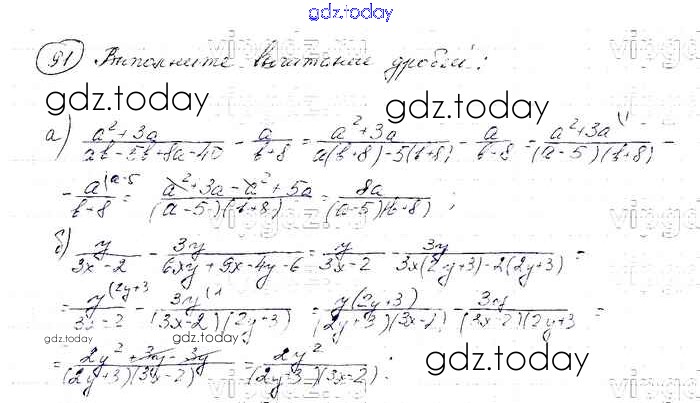 gdz.today
91 Выполните вычитание дробей:
gdz.today gdz.today
а) (a²+3a)/(ab-5b+8a-40) - a/(b+8) = (a²+3a)/(a(b+8)-5(b+8)) - a/(b-8) = (a²+3a (1)/((a-5)(b+8)) -
- a(a-5/(b-8) = (a²+3a-a²+5a)/((a-5)(b+8)) = 8a/((a-5)(b+8));
б) y/(3x-2) - 3y/(6xy+9x-4y-6) = y/(3x-2) - 3y/(3x(2y+3)-2(2y+3)) =
= y(2y+3/(3x-2) - 3y(1/((3x-2)(2y+3)) = y(2y+3)/((2y+3)(3x-2)) - 3y/((3x-2)(2y+3) =
gdz.today gdz.today
= (2y²+3y-3y)/((2y+3)(3x-2)) = 2y²/((2y+3)(3x-2)).
gdz.today